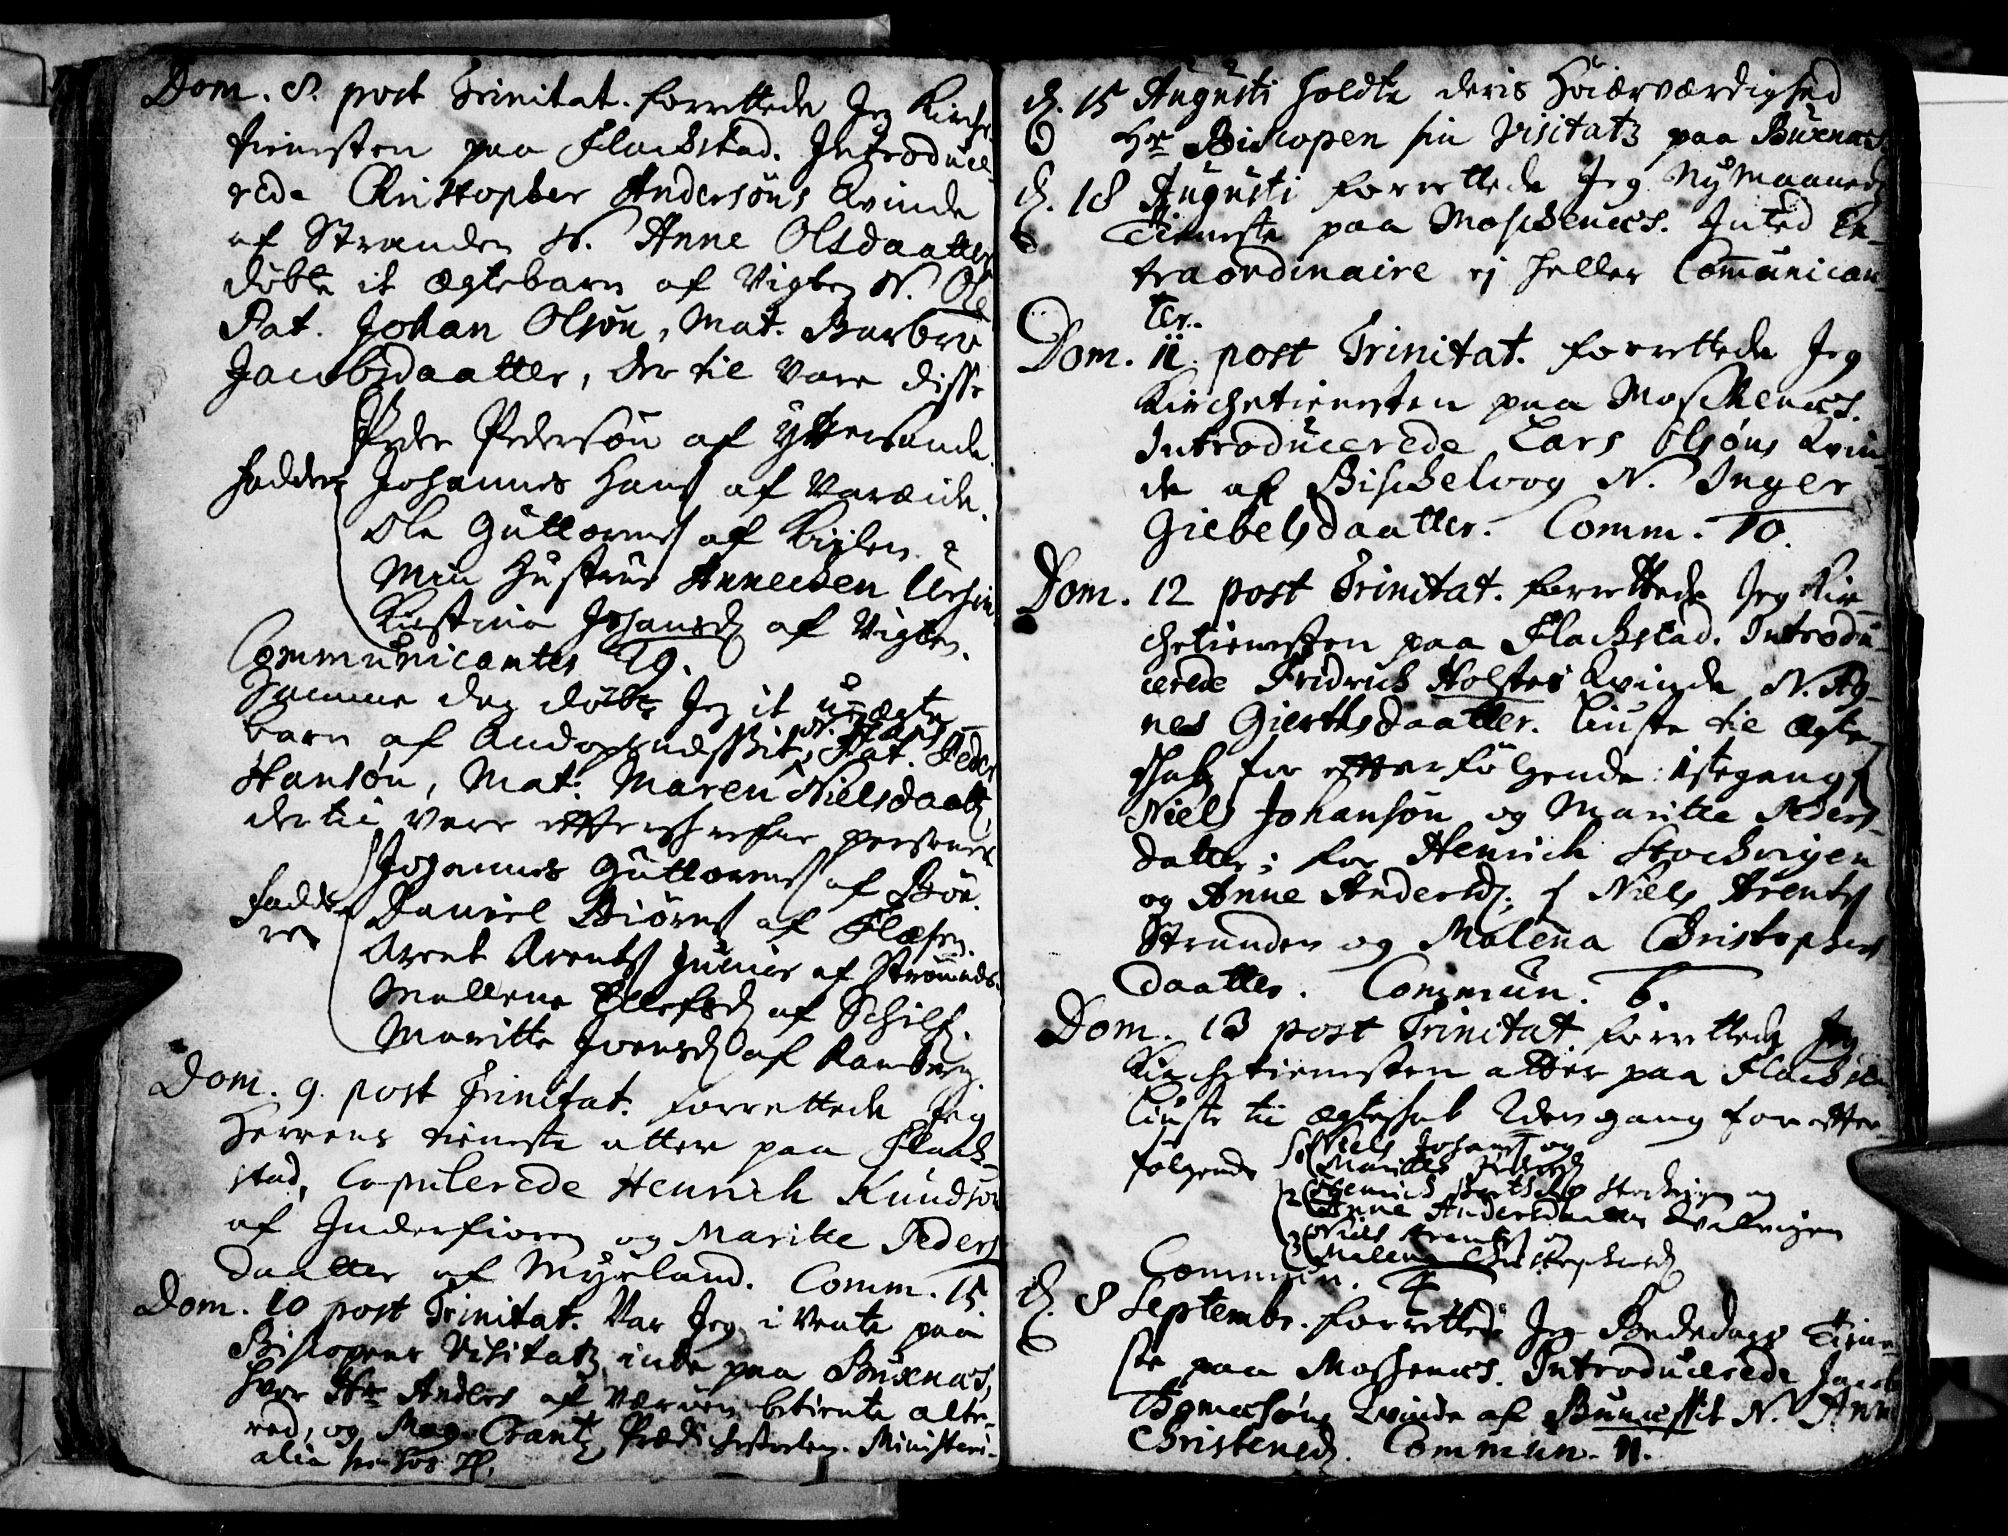 Dom. 8. post Trinitat. forrettede Jeg Kirche
tienesten paa Flackstad. Introduce-
rede Christopher Andersøns Kvinde
af Stranden N. Anne Olsdaatter
døbte it Ægtebarn af Vigten N. Ole
Pat. Johan Olsøn, Mat. Barbro
Jacobsdaatter, der til vare disse
Peder Pedersøn af Yttersande.
Faddere Johannes Hans af Vareide.
Ole Guttorms af Kiilen.
Min Hustrue Annechen
Kirstina Johansd af Vigten.
Communicantes 29.
Samme dag døbte Jeg it uægte
barn af N. Hans Pat. Peder
Hansøn, Mat. Maren Nielsdaatt,
dertil vare efterskrefne personer
Johannes Guttorms af Bøe.
Fadde- Daniel Biørns af Flæsen.
rer Arent Arents Junior af Strømnes.
Mallena Ellefsd af Schilf.
Maritte Iversd af Ramberg.
Dom. 9. post Trinitat. forrettede Jeg
Herrens tieneste atter paa Flack-
stad, Copulerede Henrich Knudsøn
af Inderfioren og Maritte Peders
daatter af Myrland. Comm. 15.
Dom. 10 post Trinitat. Var Jeg i vente paa
Bispens Visitatz inde paa Buxnæs,
hvor Hr Anders af Værøen betiente alte-
red, og Mag. Crantz Prædichestolen. Ministeri-
alia
d. 15 Augusti holdte deris Høiærværdighed
Hr Biscopen sin Visitatz paa Buxnæs.
d. 18 Augusti forrettede Jeg Nÿ Maaneds
Tieneste paa Moschenæs. Inted Ex-
traordinaire ej heller Communican-
ter.
Dom. 11. post Trinitat. forrettede Jeg
Kirchetienesten paa Moschenæs.
Introducerede Lars Olsøns Kvin-
de af Bischelvog N. Inger
Giebelsdaatter. Comm. 10.
Dom. 12 post Trinitat. forrettede Jeg Kir-
chetienesten paa Flackstad. Introdu-
cerede Fridrich Holstes Kvinde N. Ag-
nes Gierthsdaatter. Liuste til Ægte-
skab for efterfølgende 1stegang
Niels Johansøn og Maritte Peders-
datter; for Henrich Stochvigen
og Anne Andersd; Niels Arents
Stranden og Malena Christophers
daatter. Commun. 6.
Dom. 13 post Trinitat. forrettede Jeg
Kirchetienesten atter paa Flackstad
Liuste til ægteskab 2den gang for efter-
følgende 1 Niels Johans og
Marittes Pedersd
2 Henrich Stochvigen og
Anne Andersdaatter
3 Niels Arents og
Malena Christophersd
Commun. 4
d. 8 Septembr. forrettede Jeg Bededags Tiene-
ste paa Moschenæs. Introducerede Jacob
Thomæsøns Kvinde af N. Anne
Christensd. Commun. 11.